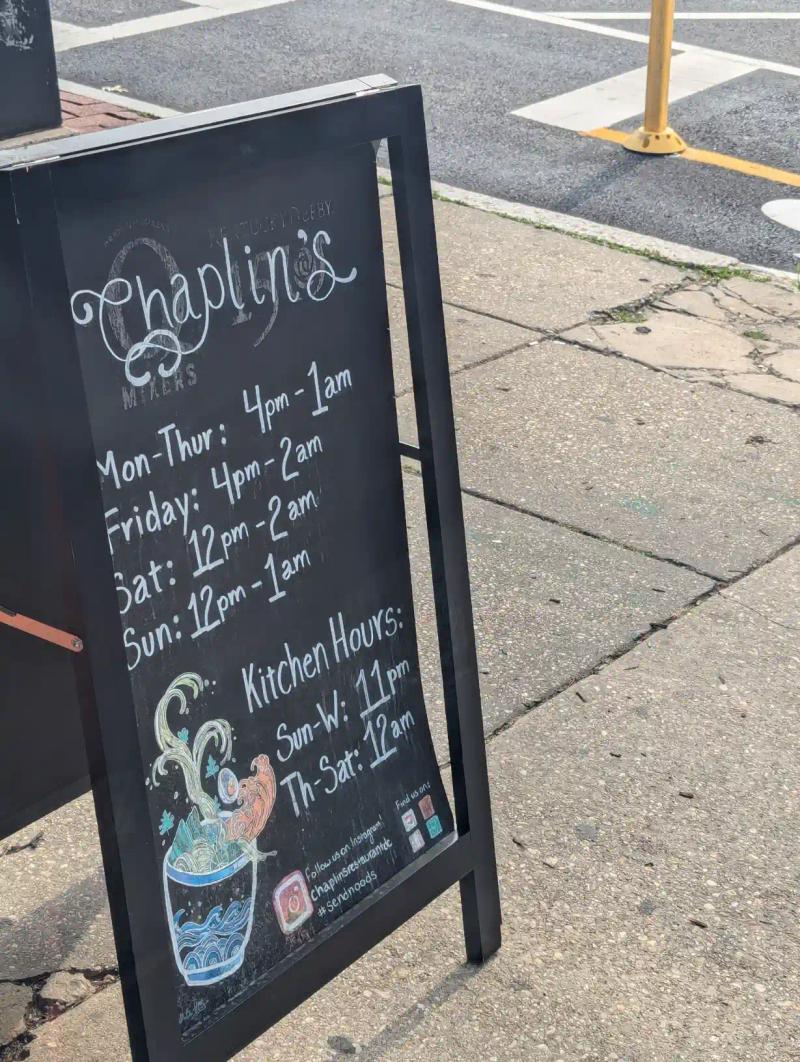 KENTUCKY DERBY
Chaplin's
MIXERS
Mon-Thur: 4pm-1am
Friday: 4pm-2am
Sat: 12pm-2am
Sun: 12pm-1am
Kitchen Hours:
Sun-W: 11pm
Th-Sat: 12am
Find us on:
Follow us on Instagram!
chaplinsrestaurantdc
#sendnoods